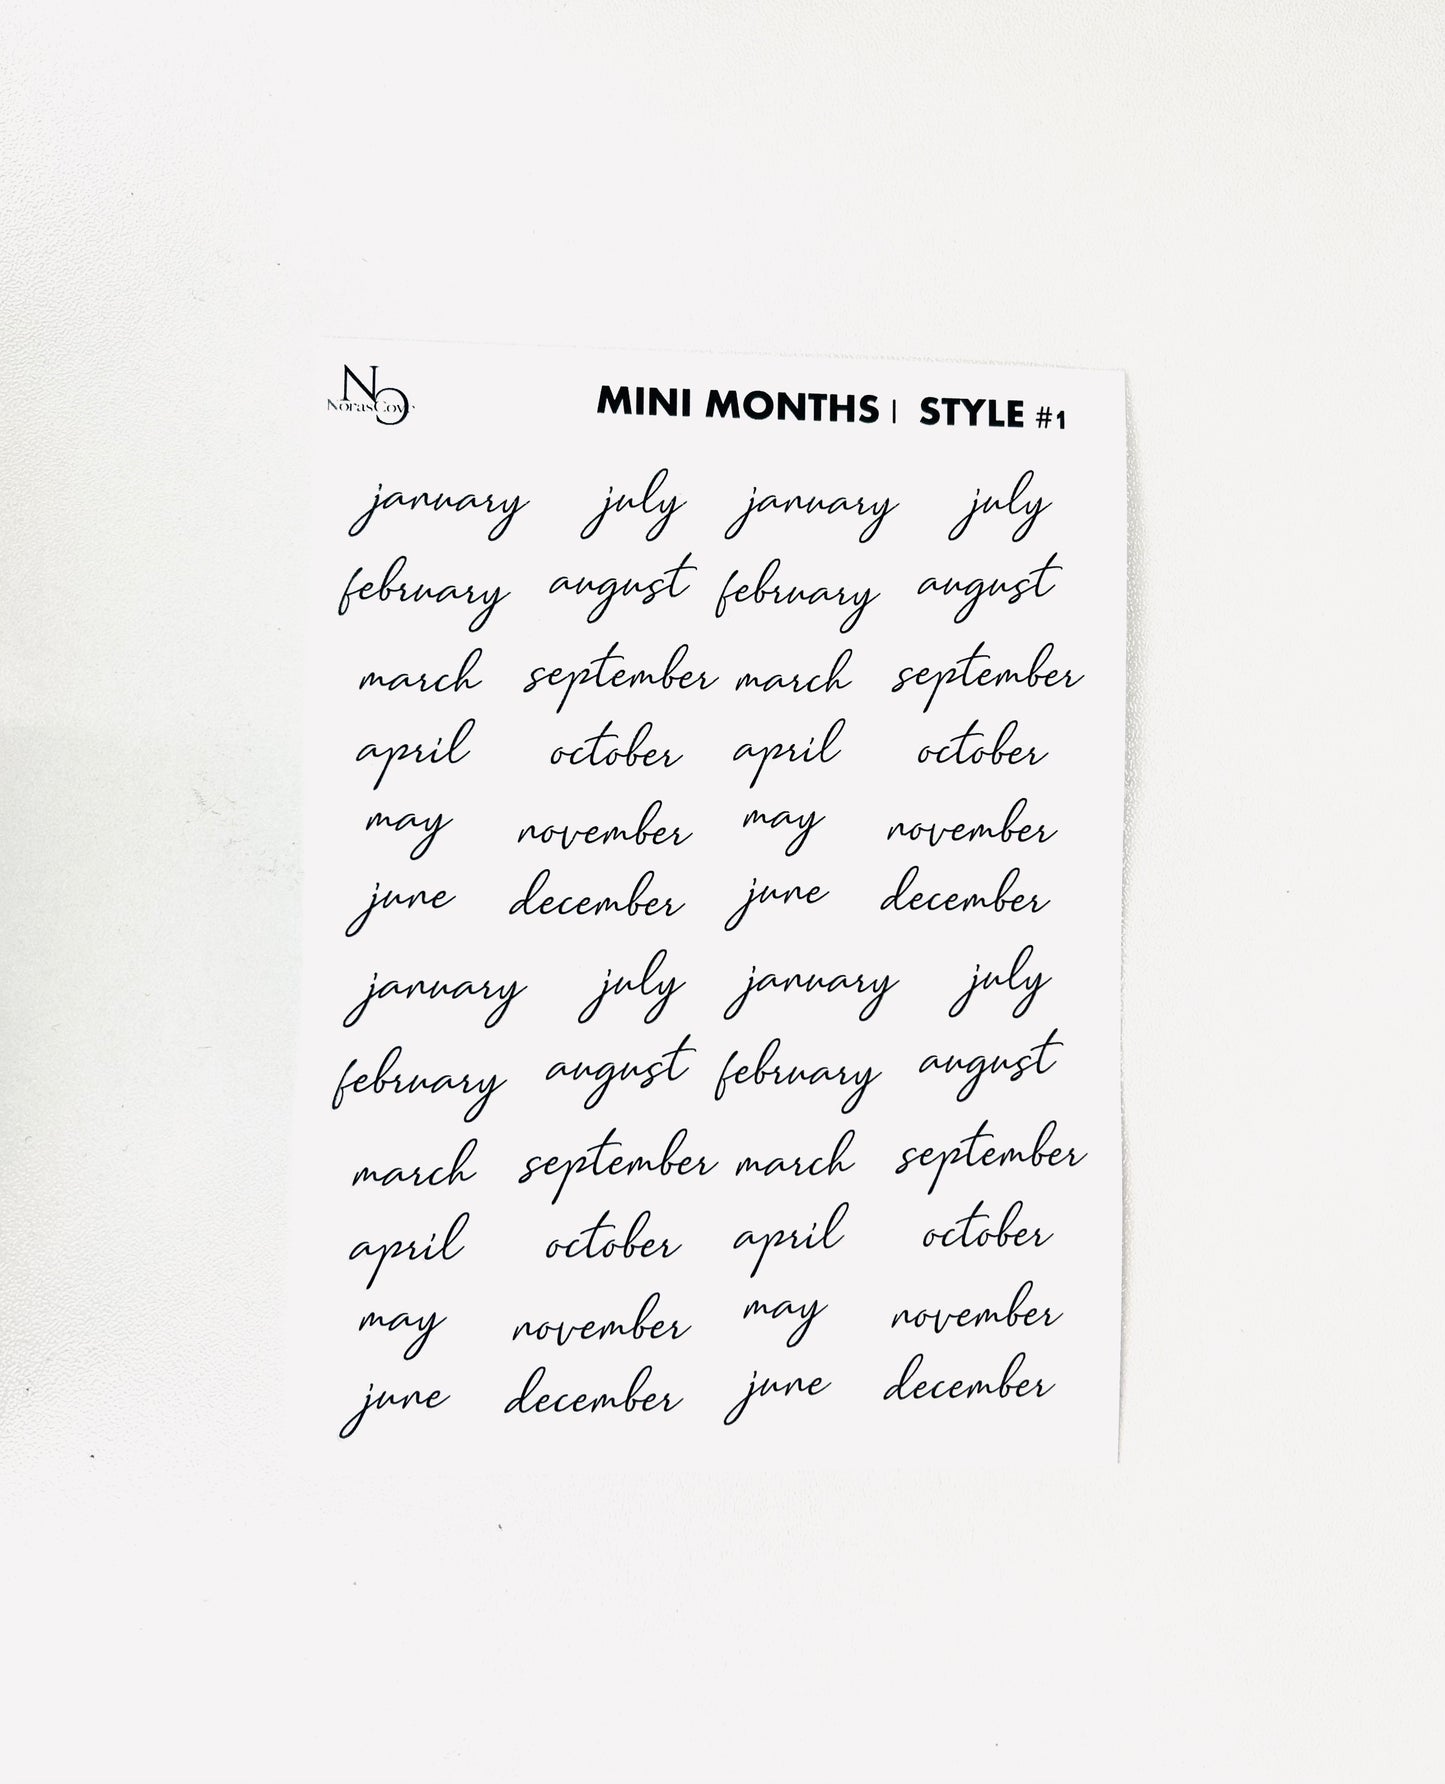 NC
NorasCove
MINI MONTHS | STYLE #1
january july january july
february august february august
march september march september
april october april october
may november may november
june december june december
january july january july
february august february august
march september march september
april october april october
may november may november
june december june december